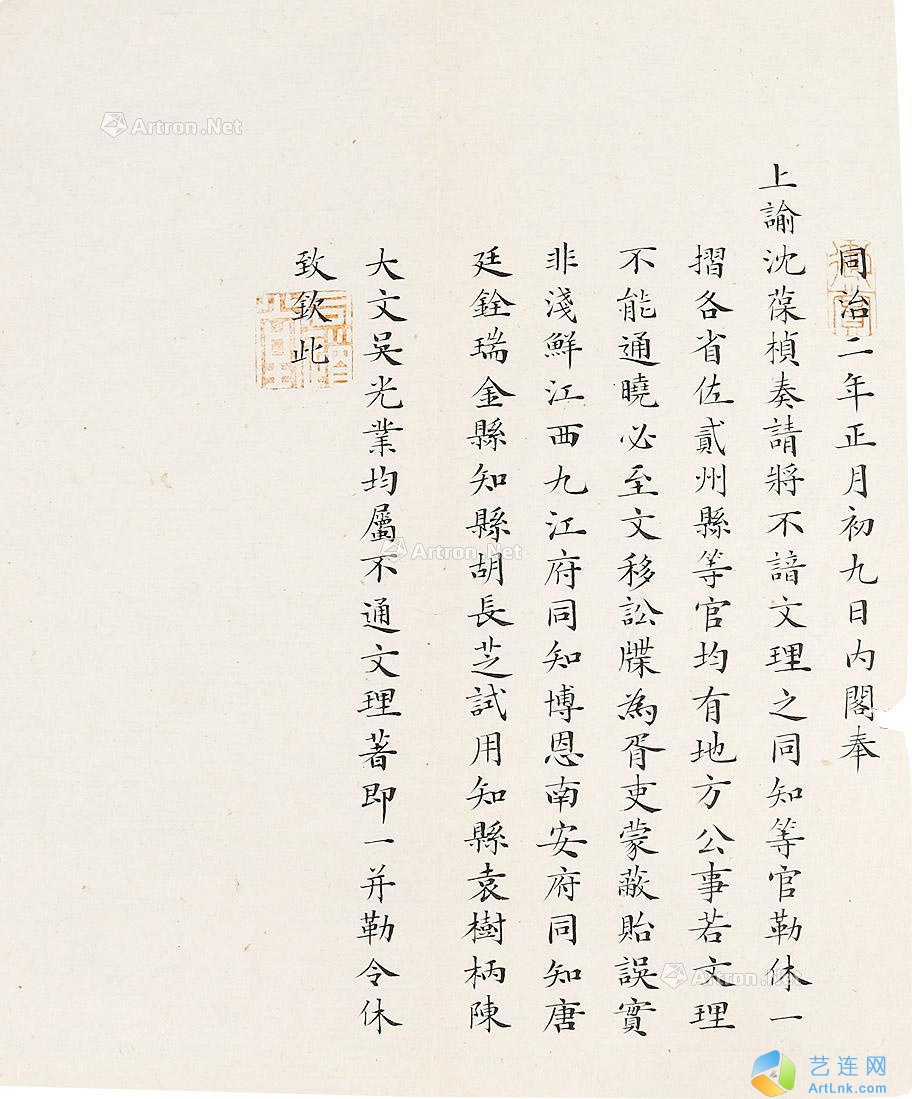 同治二年正月初九日内閣奉
上諭沈葆楨奏請將不諳文理之同知等官勒休一
摺各省佐貳州縣等官均有地方公事若文理
不能通曉必至文移訟牒為胥吏蒙蔽貽誤實
非淺鮮江西九江府同知博恩南安府同知唐
廷銓瑞金縣知縣胡長芝試用知縣袁樹柄陳
大文吳光業均屬不通文理著即一并勒令休
致欽此
Artron.Net
Artron.Net
Artron.Net
艺连网
ArtLnk.com